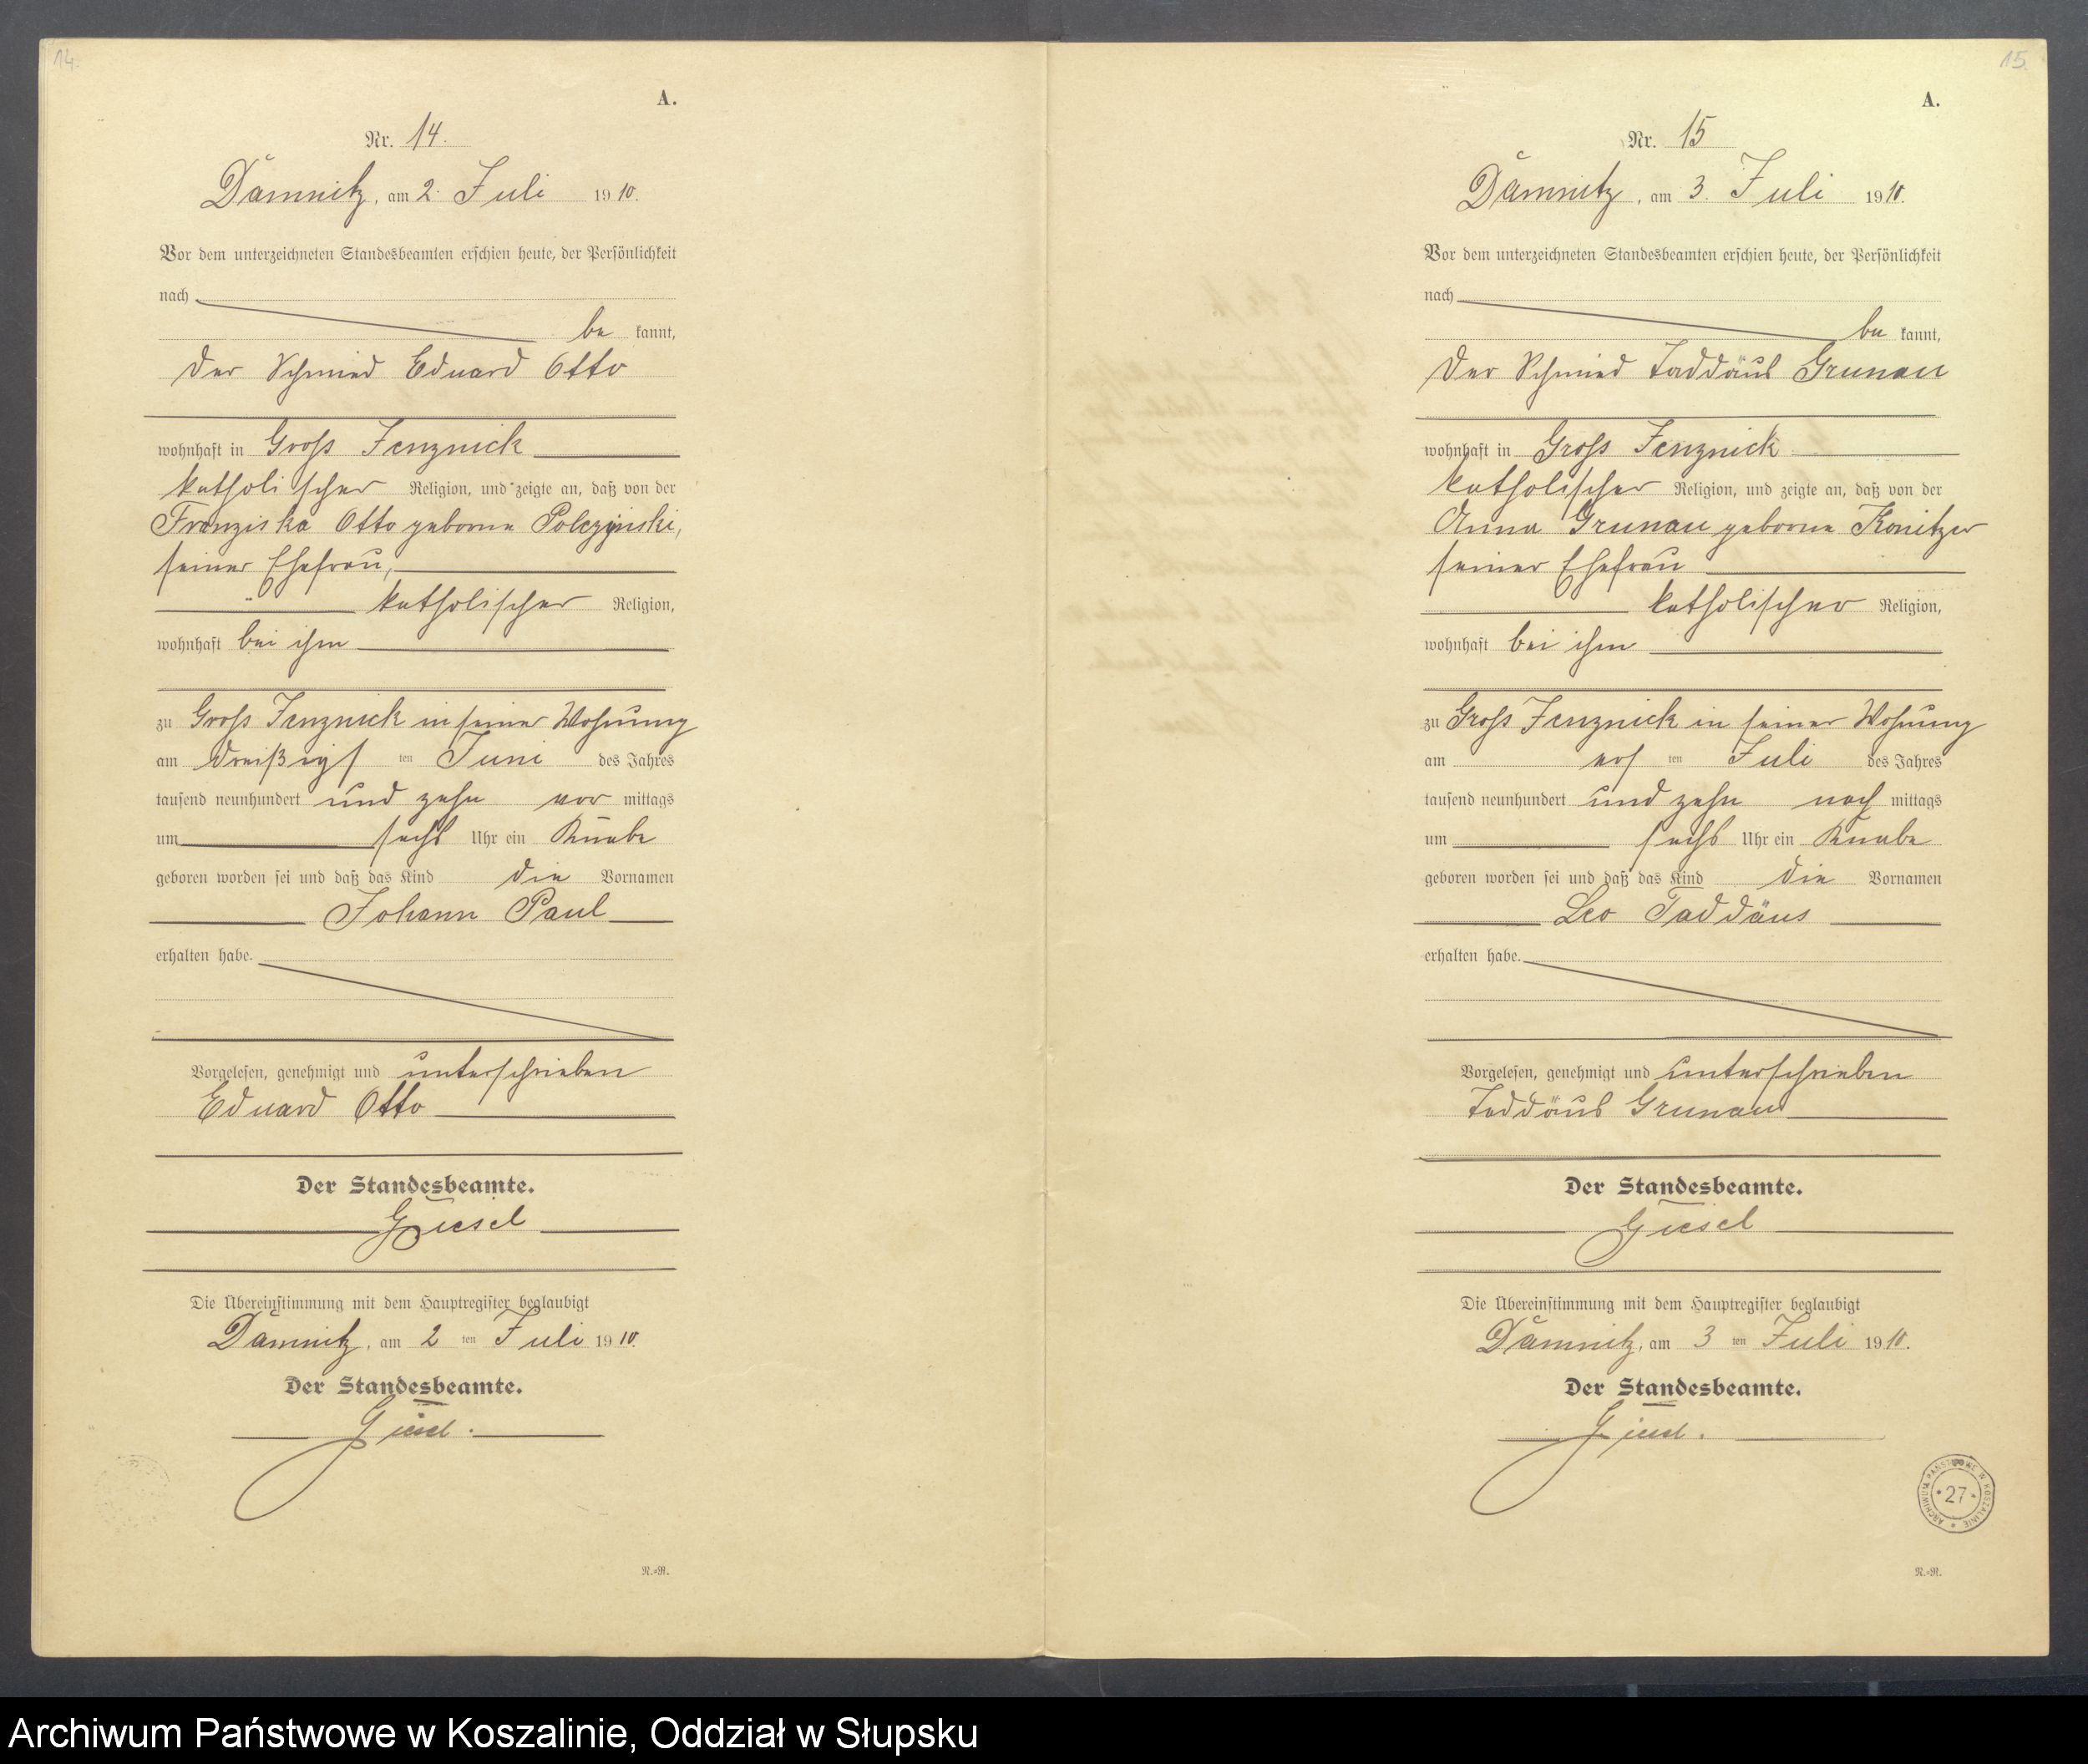 14.
A.
Nr. 14.
Dämnitz, am 2. Juli 1910.
Vor dem unterzeichneten Standesbeamten erschien heute, der Persönlichkeit
nach
be kannt,
der Schmied Eduard Otto
wohnhaft in Gross Jenznick
katholischer Religion, und zeigte an, daß von der
Franziska Otto geborne Polczynski,
seiner Ehefrau,
katholischer Religion,
wohnhaft bei ihm
zu Gross Jenznick in seiner Wohnung
am dreißigs ten Juni des Jahres
tausend neunhundert und zehn vor mittags
um sechs Uhr ein Knabe
geboren worden sei und daß das Kind die Vornamen
Johann Paul
erhalten habe.
Vorgelesen, genehmigt und unterschrieben
Eduard Otto
Der Standesbeamte.
Giesel
Die Übereinstimmung mit dem Hauptregister beglaubigt
Dämnitz, am 2 ten Juli 1910.
Der Standesbeamte.
Giesel.
R.=R.
15.
A.
Nr. 15
Dämnitz, am 3. Juli 1910.
Vor dem unterzeichneten Standesbeamten erschien heute, der Persönlichkeit
nach
be kannt,
der Schmied Taddäus Grunau
wohnhaft in Gross Jenznick
katholischer Religion, und zeigte an, daß von der
Anna Grunau geborne Konitzer
seiner Ehefrau
katholischer Religion,
wohnhaft bei ihm
zu Gross Jenznick in seiner Wohnung
am ers ten Juli des Jahres
tausend neunhundert und zehn nach mittags
um sechs Uhr ein Knabe
geboren worden sei und daß das Kind die Vornamen
Leo Taddäus
erhalten habe.
Vorgelesen, genehmigt und unterschrieben
Taddäus Grunau
Der Standesbeamte.
Giesel
Die Übereinstimmung mit dem Hauptregister beglaubigt
Dämnitz, am 3 ten Juli 1910.
Der Standesbeamte.
Giesel.
ARCHIWUM PAŃSTWOWE W KOSZALINIE
* 27 *
R.=R.
Archiwum Państwowe w Koszalinie, Oddział w Słupsku